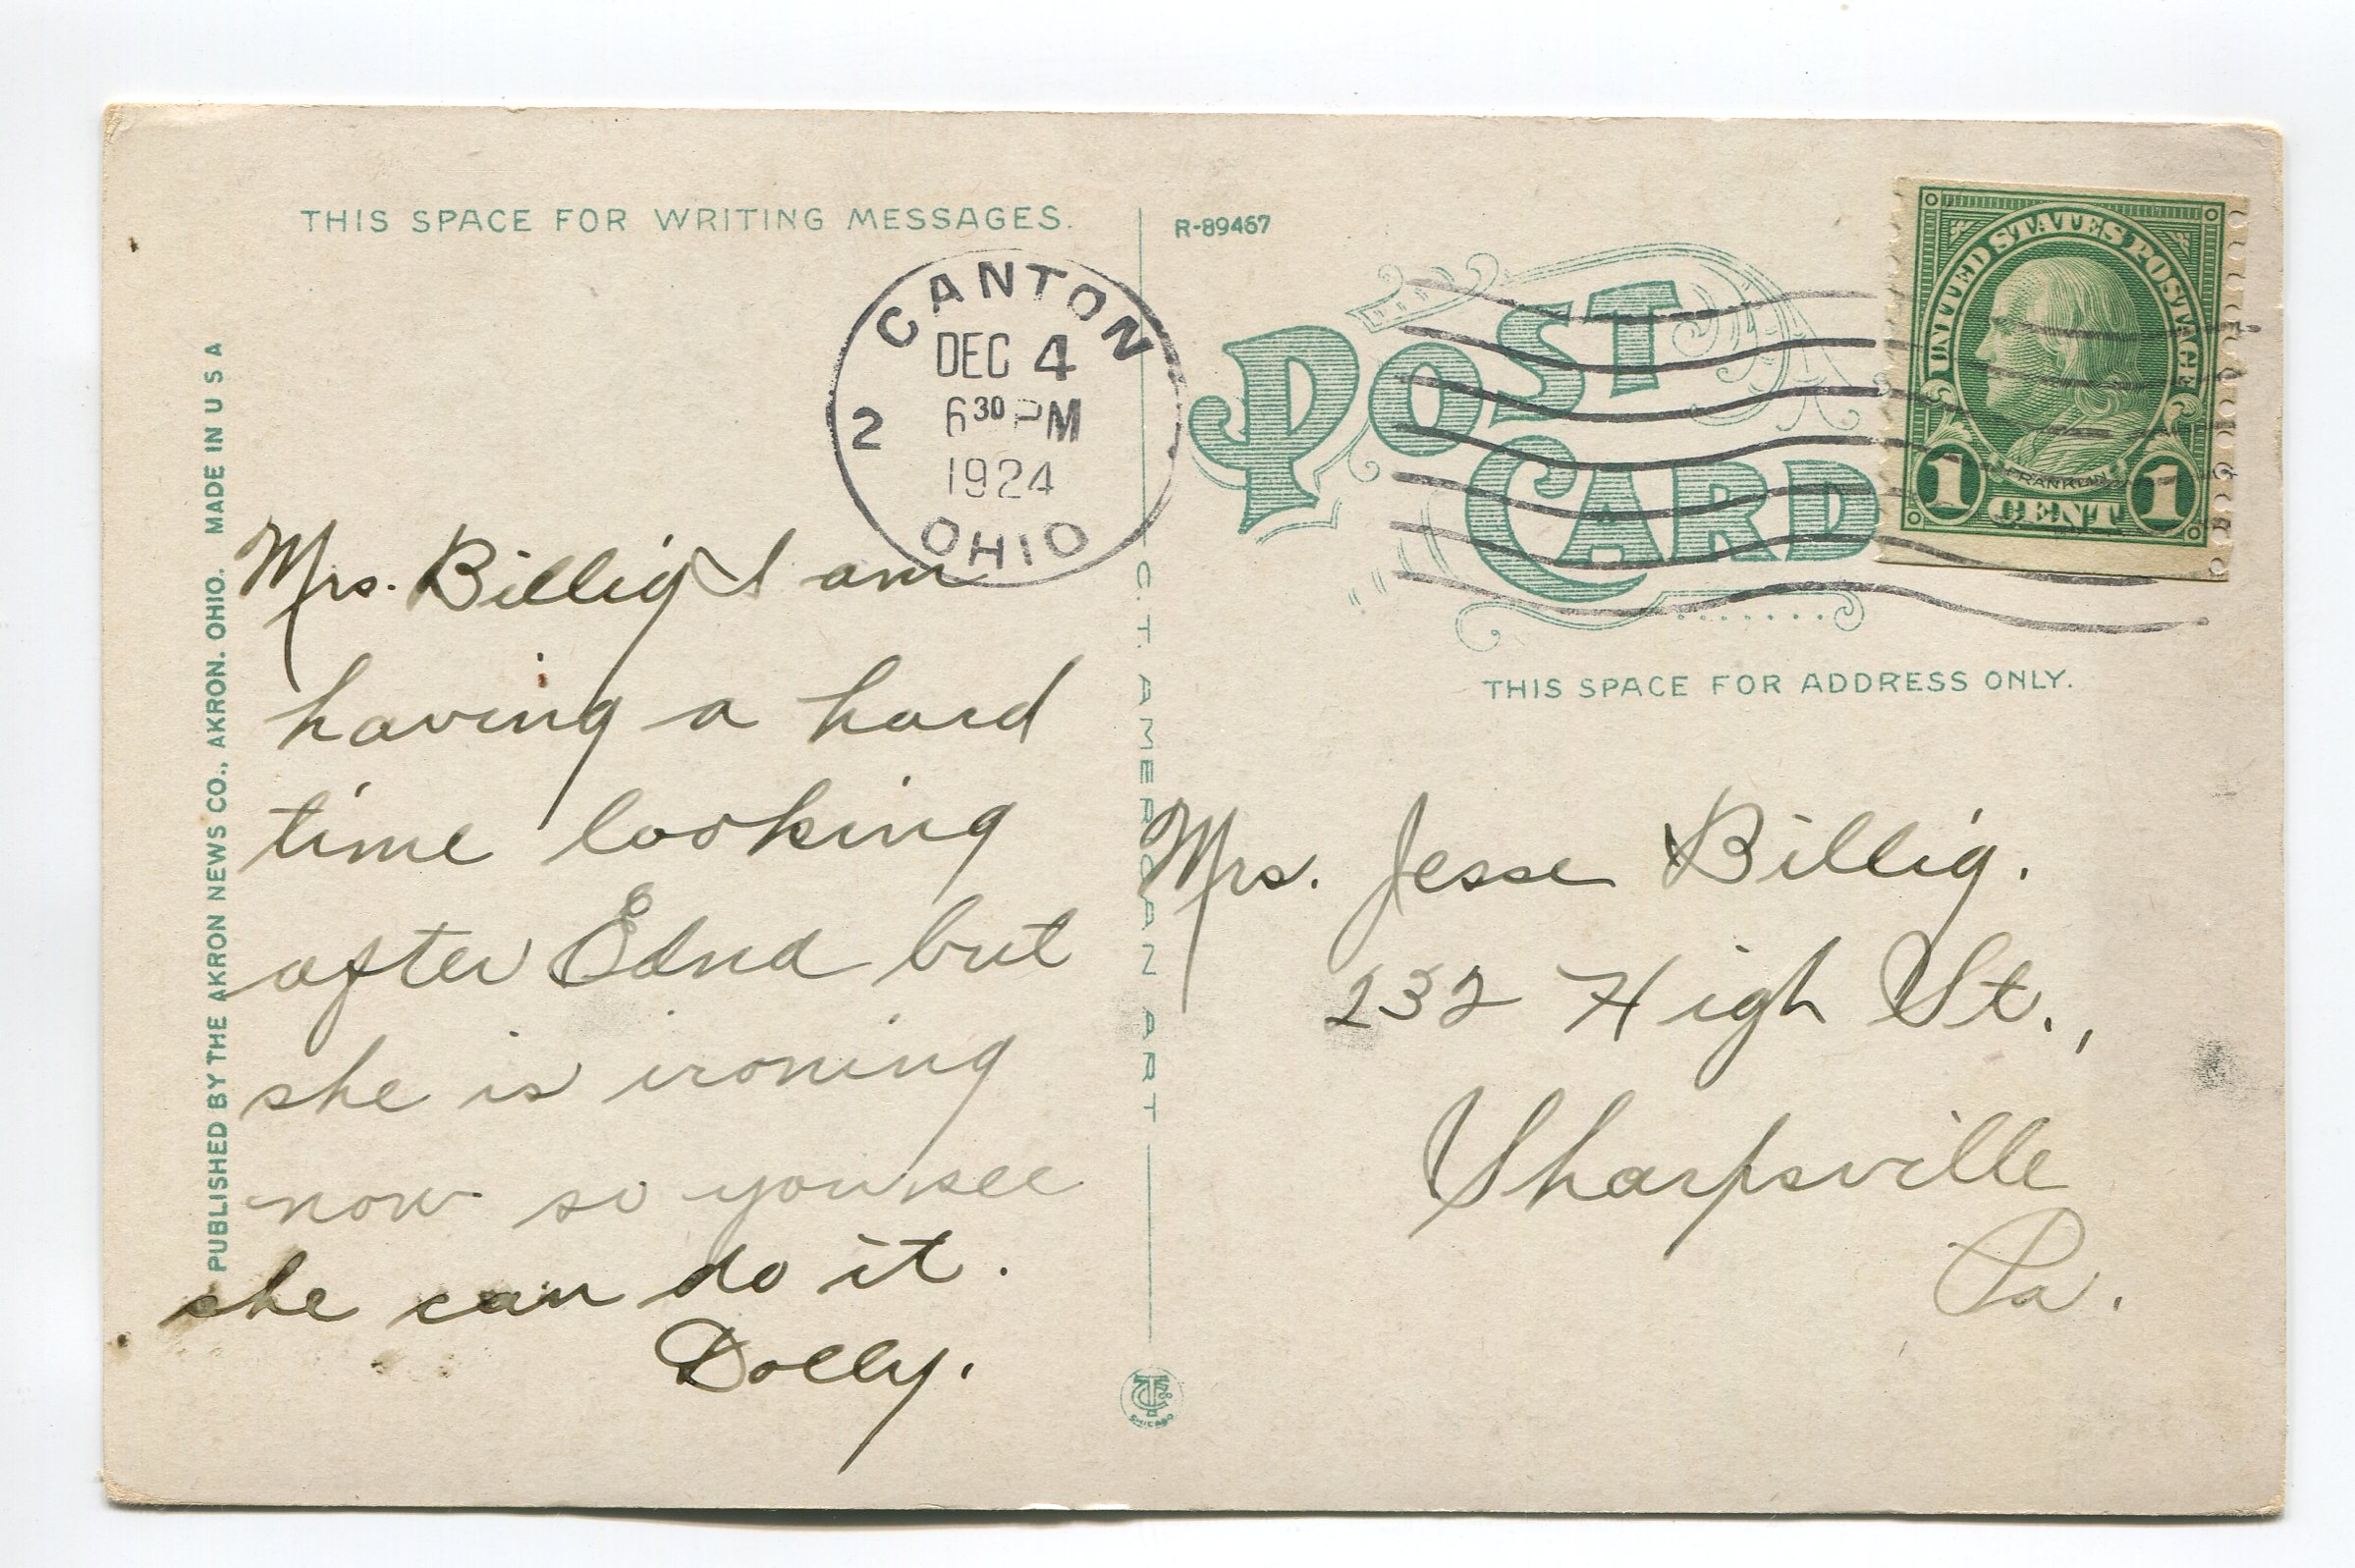 THIS SPACE FOR WRITING MESSAGES.
PUBLISHED BY THE AKRON NEWS CO., AKRON. OHIO. MADE IN U S A
CANTON
DEC 4
2
6 30 PM
1924
OHIO
Mrs. Billig I am
having a hard
time looking
after Edna but
she is ironing
now so you see
she can do it.
Dolly.
C. T. AMERICAN ART
CHICAGO
R-89467
POST
CARD
UNITED STATES POSTAGE
FRANKLIN
1 CENT 1
THIS SPACE FOR ADDRESS ONLY.
Mrs. Jesse Billig.
232 High St.,
Sharpsville
Pa.